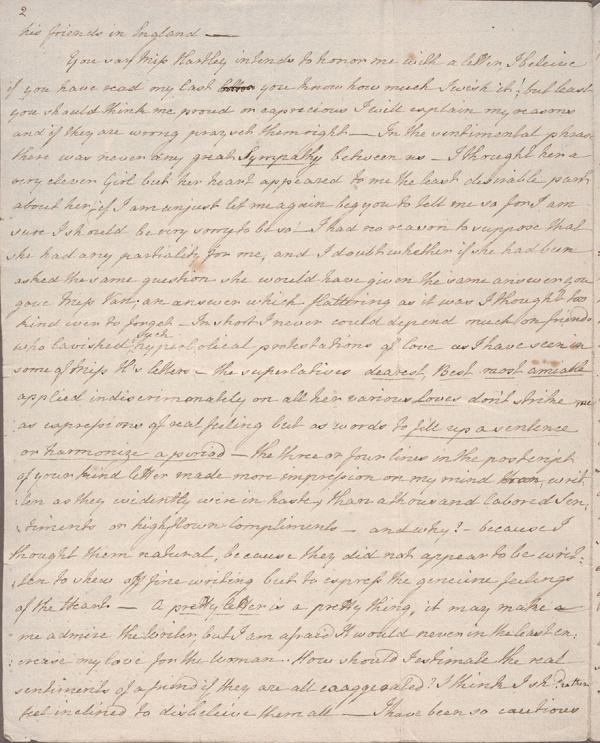 2
his friends in England —
You say Miss Hartley intends to honor me with a letter, I beleive
if you have read my last you know how much I wish it! but least
you should think me proud or capricious I will explain my reasons
and if they are wrong pray set them right — In the sentimental phrase
there was never any great Sympathy between us — I thought her a
very clever Girl but her heart appeared to me the least desirable part
about her, if I am unjust let me again beg you to tell me so for I am
sure I should be very sorry to be so! — I had no reason to suppose that
she had any partiality for me, and I doubt whether if she had been
asked the same question she would have given the same answer you
gave Miss Van; an answer which flattering as it was I thought too
kind ever to forget — In short I never could depend much on friends
who lavished such hyperbolical protestations of love as I have seen in
some of Miss H's letters — the superlatives dearest, Best most amiable
applied indiscriminately on all her various Loves don't strike me
as expressions of real feeling but as words to fill up a sentence
or harmonize a period — the three or four lines in the postscript
of your kind letter made more impression on my mind writ:
:ten as they evidently were in haste, than a thousand labored Sen:
:timents or highflown compliments — and why? — because I
thought them natural, because they did not appear to be writ:
:ten to shew off fine writing but to express the genuine feelings
of the Heart — A pretty letter is a pretty thing, it may make
me admire the Writer, but I am afraid It would never in the least en:
:crease my love for the Woman. How should I estimate the real
sentiments of a friend if they are all exaggerated? I think I shd. rather
feel inclined to disbeleive them all — I have been so cautious